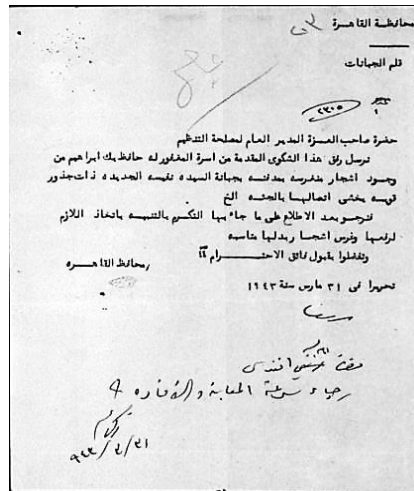 محافظة القاهرة
قلم الجبانات
٢٣٠٥
حضرة صاحب العزة المدير العام لمصلحة التنظيم
نرسل رفق هذا الشكوى المقدمة من اسرة المغفور له حافظ بك ابراهيم من
وجود اشجار منغرسه بمدفنه بجبانة السيده نفيسه الجديده ذات جذور
قويه يخشى اتصالها بالجثه الخ
فنرجو بعد الاطلاع على ما جاء بها التكرم بالتنبيه باتخاذ اللازم
لرفعها وغرس اشجار بدلها مناسبه
وتفضلوا بقبول فائق الاحترام
محافظ القاهره
تحريرا فى ٣١ مارس سنة ١٩٤٣
افندى
رجاء سرعة المعاينة والافاده
٩٤٣/٣/٣١